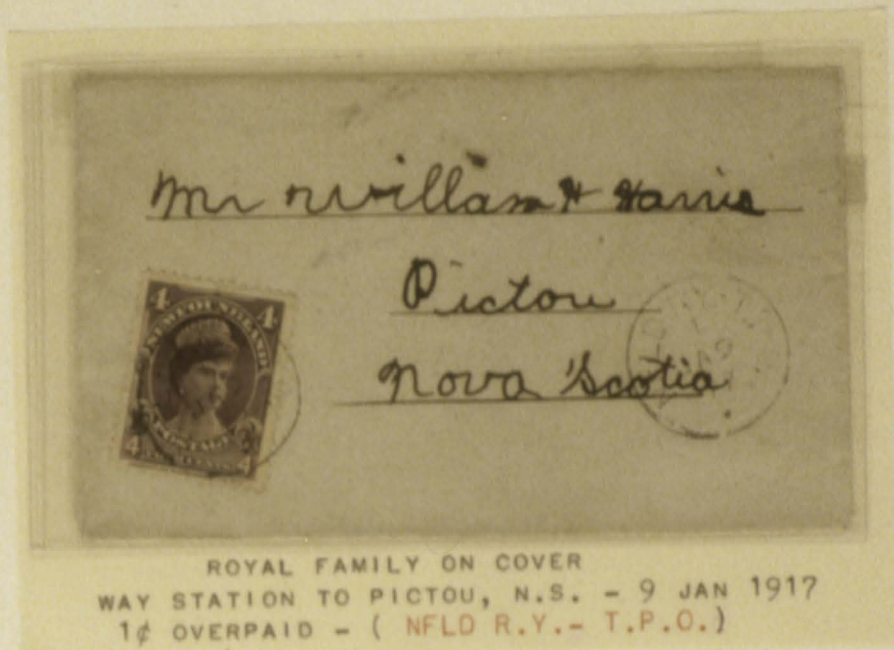 Mr William H Harris
Pictou
Nova Scotia
4 4
NEWFOUNDLAND
POSTAGE
4 4
ROYAL FAMILY ON COVER
WAY STATION TO PICTOU, N.S. - 9 JAN 1917
1¢ OVERPAID - ( NFLD R.Y.- T.P.O.)